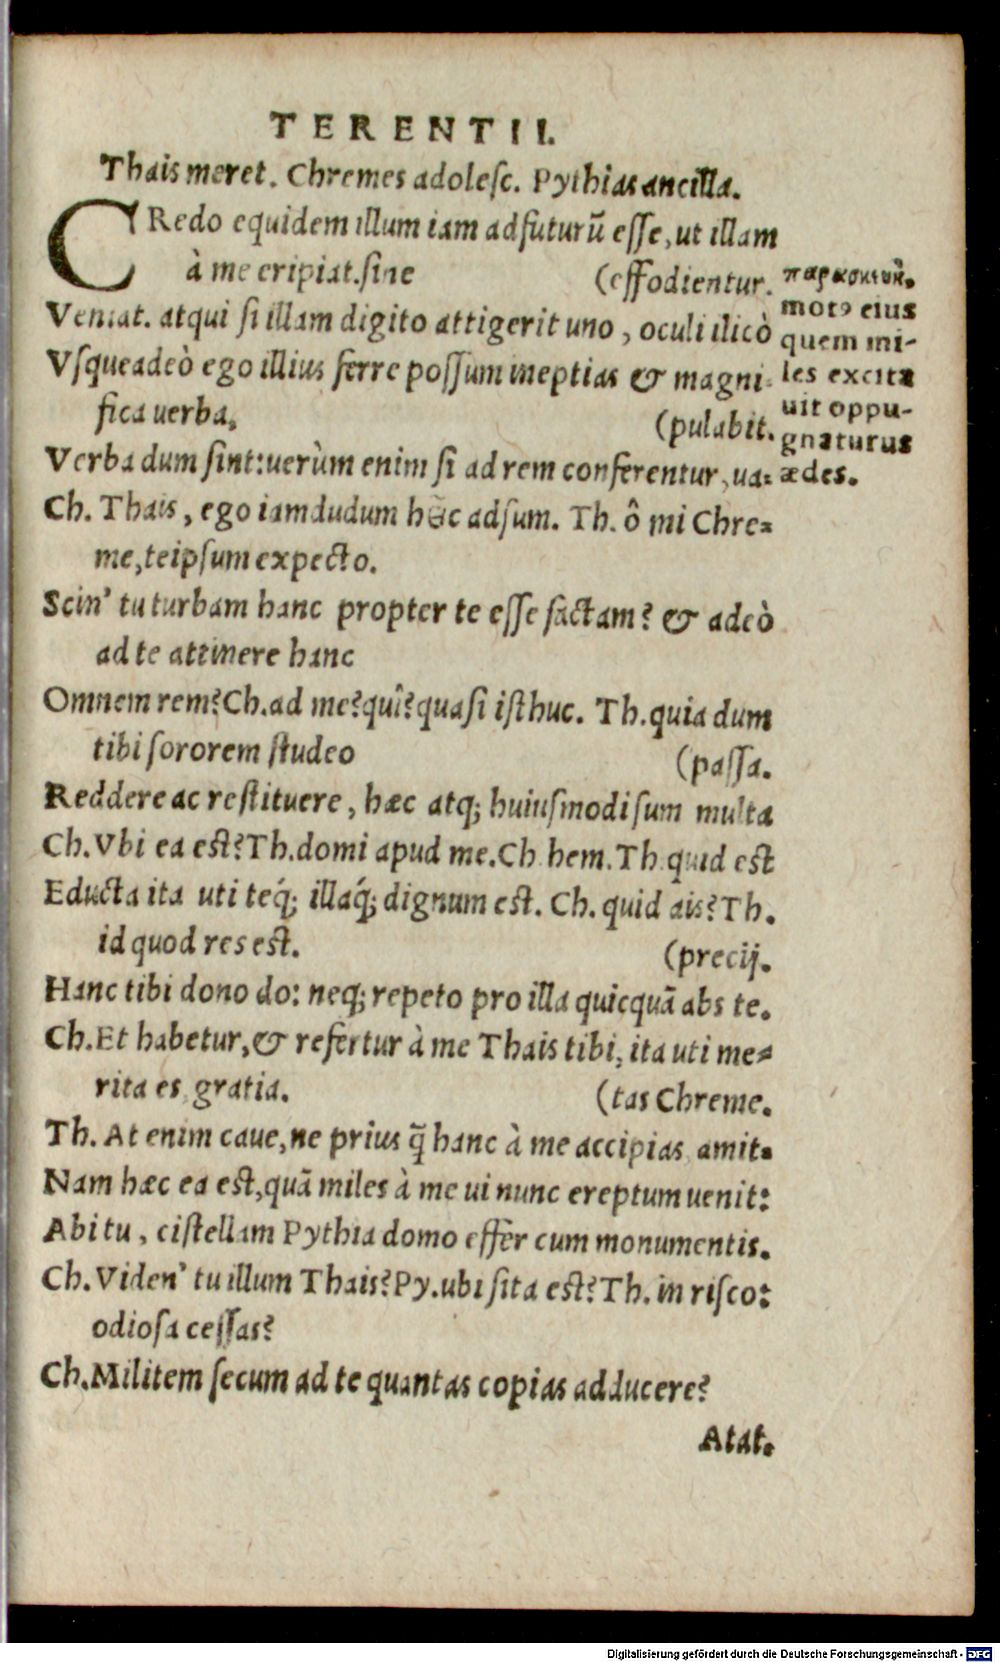 TERENTII.
Thais meret. Chremes adolesc. Pythias ancilla.
CRedo equidem illum iam adfuturũ esse, ut illam
à me eripiat. sine (effodientur.
Veniat. atqui si illam digito attigerit uno, oculi ilicò
Vsqueadeò ego illius ferre possum ineptias & magni-
fica uerba, (pulabit.
Verba dum sint: uerùm enim si ad rem conferentur, ua-
Ch. Thais, ego iamdudum hîc adsum. Th. ô mi Chre-
me, teipsum expecto.
Scin' tu turbam hanc propter te esse factam? & adeò
ad te attinere hanc
Omnem rem? Ch. ad me? quî? quasi isthuc. Th. quia dum
tibi sororem studeo (passa.
Reddere ac restituere, hæc atq; huiusmodi sum multa
Ch. Vbi ea est? Th. domi apud me. Ch hem. Th quid est
Educta ita uti teq́; illaq́; dignum est. Ch. quid ais? Th.
id quod res est. (precij.
Hanc tibi dono do: neq; repeto pro illa quicquã abs te.
Ch. Et habetur, & refertur à me Thais tibi, ita uti me-
rita es, gratia. (tas Chreme.
Th. At enim caue, ne prius q̃ hanc à me accipias amit-
Nam hæc ea est, quã miles à me ui nunc ereptum uenit:
Abi tu, cistellam Pythia domo effer cum monumentis.
Ch. Viden' tu illum Thais? Py. ubi sita est? Th. in risco:
odiosa cessas?
Ch. Militem secum ad te quantas copias adducere?
Atat.
motꝰ eius
quem mi-
les excita
uit oppu-
gnaturus
ædes.
Digitalisierung gefördert durch die Deutsche Forschungsgemeinschaft - DFG